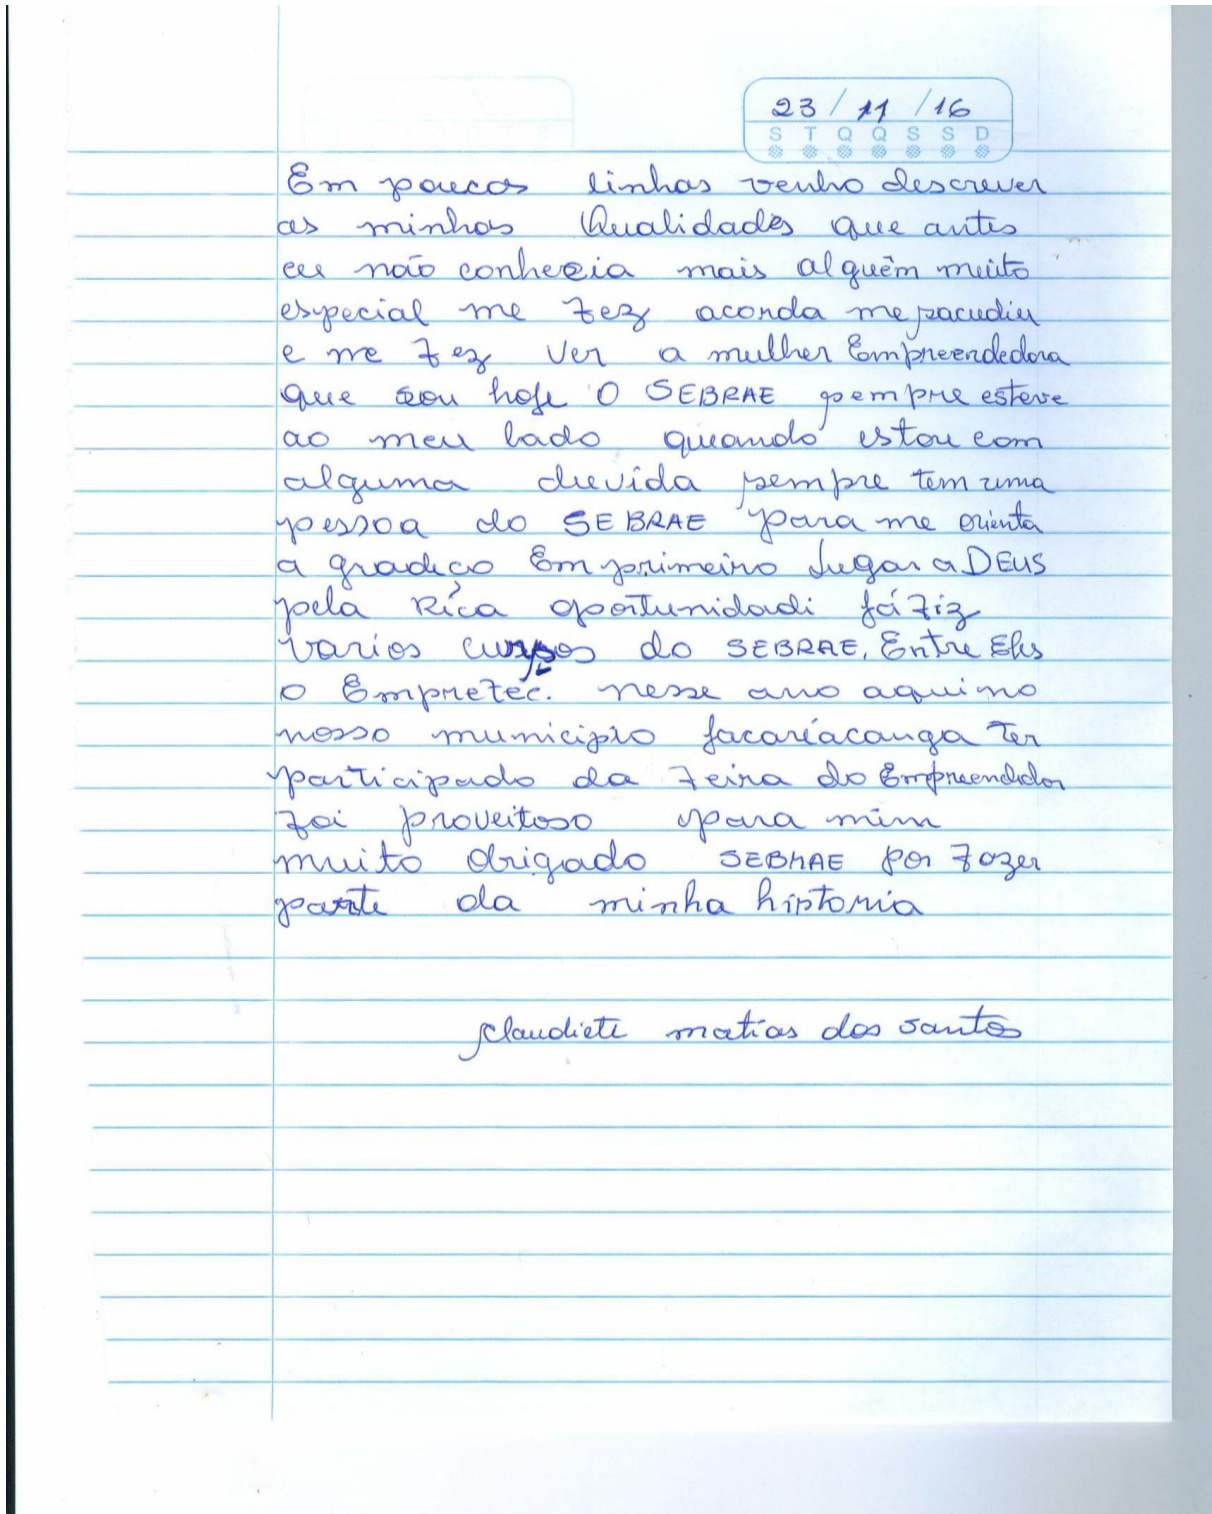 23/11/16
S T Q Q S S D
Em poucas linhas venho descrever
as minhas Qualidades que antes
eu não conhecia mais alguêm muito
especial me fez aconda me sacudiu
e me fez ver a mulher Empreendedora
que sou hoje O SEBRAE sempre esteve
ao meu lado quando estou com
alguma duvida sempre tem uma
pessoa do SEBRAE para me orienta
a gradeço Em primeiro Lugar a DEUS
pela Rica oportunidadi já fiz
varios cursos do SEBRAE, Entre Elis
o Empretec. nesse ano aqui no
nosso municipio jacariacanga Ter
participado da feira do Empreendedor
foi proveitoso para mim
muito Obrigado SEBRAE por fazer
parte da minha historia
Claudiete matias dos santos